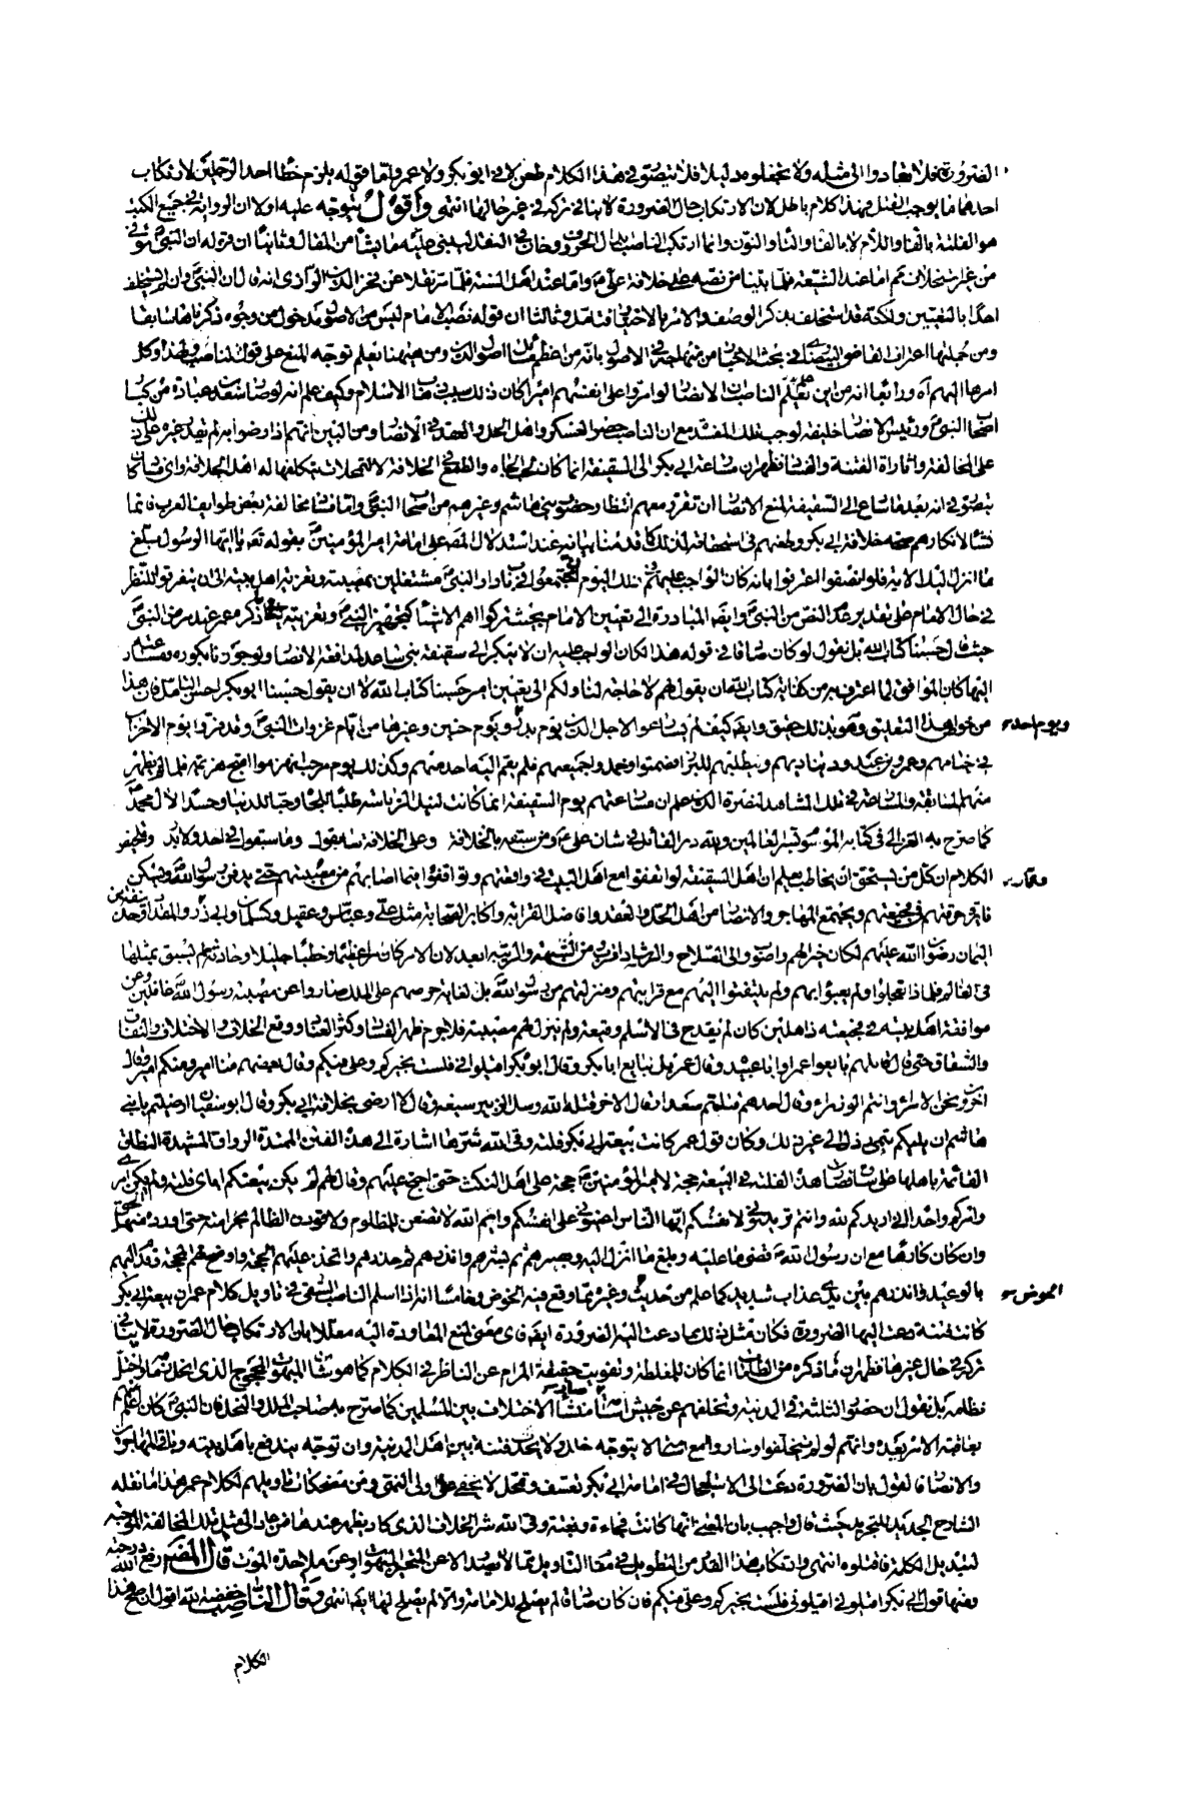 الضرورة فلا تعادوا الى مثله ولا تجعلوه دليلا فلا يتصور في هذا الكلام طعن لا في ابو بكر ولا عمر واما قوله يلزم خطأ احد الرجلين لارتكاب
احدهما ما يوجب القتل فهذا كلام باطل لان الارتكاب حال الضرورة لا ينافي تركه في غير حالها انتهى واقول يتوجه عليه اولا ان الرواية في جميع الكتب
هو الفلتة بالفاء واللام لا بالفاء والتاء والنون وانما ارتكب الناصب بدل الحروف وخان في النقل ليبني عليه ما يشأ من المقال وثانيا ان قوله ان النبي توفى
من غير استخلاف تم اما عند الشيعة فلما بينا من نصه على خلافة علي واما عند اهل السنة فلما مر نقلا عن فخر الدين الرازي انه قال ان النبي وان لم يستخلف
احدا بالتعيين ولكنه قد استخلف بذكر الوصف والامر بالاختيار فتامل وثالثا ان قوله نصب الامام ليس من الاصول مدخول من وجوه ذكرناها سابقا
ومن جملتها اعتراف القاضي البيضاوي في بحث الاخبار من منهاجه في الاصول بانه من اعظم مسائل اصول الدين ومن ههنا يعلم توجه المنع على قول الناصب في هذا وكل
امرها اليهم آه ورابعا انه من اين يعلم الناصب ان الانصار لو امروا على انفسهم اميرا كان ذلك سبب ذهاب الاسلام وكيف علم انه لو صار سعد بن عبادة من كبار
اصحاب النبي ورئيس الانصار خليفة لوجب تلك المفسدة مع ان الناصب حصر العسكر واهل الحل والعقد في الانصار ومن البين انهم اذا رضوا به لم يقدر غيره على ذلك
على المخالفة واثارة الفتنة والفساد فظهر ان مسارعة ابي بكر الى السقيفة انما كان لحب الجاه والطمع في الخلافة لا لتمحلات يتكلفها له اهل الجلافة واي فساد كان
يتصور في انه بعد ما سارع الى السقيفة لمنع الانصار ان تقرر معهم انتظار حضور بني هاشم وغيرهم من اصحاب النبي واما فساد مخالفة بعض طوايف العرب فانما
نشأ لانكارهم صحة خلافة ابي بكر وطعنهم في استحقاقه لذلك كما قدمنا بيانه عند استدلال المصنف على امامة امير المؤمنين بقوله تعالى يا ايها الرسول بلغ
ما انزل اليك الاية فلو انصفوا اعترفوا بانه كان الواجب عليهم في ذلك اليوم ان يجتمعوا في دار النبي مشتغلين بمصيبته وتعزية اهل بيته الى ان يتفرغوا للنظر
في حال الامام على تقدير عدم النص من النبي وايضا المبادرة الى تعيين الامام بحيث تركوا اهم الاشياء كتجهيز النبي وتعزيته ينافي ما ذكره عمر عند مرض النبي
حيث قال حسبنا كتاب الله بل نقول لو كان صادقا في قوله هذا لكان الواجب عليه ان لا يبتكر الى سقيفة بني ساعدة لمدافعة الانصار ولو جوز باكوره تقدير عنه
اليها كان الموافق لما اعترف به من كفاية كتاب الله ان يقول لهم لا حاجة لنا ولكم الى تعيين امير حسبنا كتاب الله لا ان يقول حسبنا ابو بكر احسن التامل فان هذا
من خواص هذا التعليق وهو بذلك حقيق وايضا كيف لم يسارعوا لاجل الدين يوم بدر ويوم حنين وغيرها من ايام غزوات النبي وقد فروا يوم الاحزاب
ويوم احد
في خيامهم وعمرو بن عبد ود يناديهم ويطلبهم للبراز فصمتوا وخمدوا جميعهم فلم يقم اليه احد منهم وكذلك يوم مرحب انهزموا اقبح هزيمة فلما لم يظهر
منهم المسابقة والمسارعة في تلك المشاهد لنصرة الدين علم ان مسارعتهم يوم السقيفة انما كانت لنيل الرياسة طلبا للجاه وحبا للدنيا وحسدا لآل محمد
كما صرح به الغزالي في كتابه الموسوم بسر العالمين ولله در القائل في شان علي ومن سبقه بالخلافة وعلى الخلافة سابقوك وما سبقوك في احد ولا بدر وتلخيص
الكلام ان كل من يستحق ان يخاطب يعلم ان اهل السقيفة لو اتفقوا مع اهل البيت في وافقتهم وتوافقوا فيما اصابهم من مصيبتهم حتى يدفن رسول الله وتسكن
وقار
نايرة حرقتهم في مصيبتهم ويجتمع المهاجر والانصار من اهل الحل والعقد وافاضل القرابة واكابر الصحابة مثل علي وعباس وعقيل وسلمان وابي ذر والمقداد وحذيفة بن
اليمان رضوان الله عليهم لكان خيرا لهم واصوب والى الصلاح والرشاد اقرب من الشبهة والريبة ابعد لان الامر كان امرا عظيما وخطبا جليلا وحادثة لم يسبق مثلها
في العالم فلماذا تعجلوا ولم يعبؤا بهم ولم يلتفتوا اليهم مع قرابتهم ومنزلتهم من رسول الله بل لغاية حرصهم على الملك صاروا عن مصيبة رسول الله غافلين وعن
موافقة اهل بيته في مصيبته ذاهلين كان لم يقدح في الاسلام وقيعة ولم ينزل لهم مصيبة فلا جرم ظهر الفساد وكثر العناد ووقع الخلاف والاختلاف والنفاق
والشقاق حتى قال قايلهم بايعوا عمر او ابا عبيدة وقال عمر بل نبايع ابا بكر وقال ابو بكر اقيلوني فلست بخيركم وعلي فيكم وقال بعضهم منا امير ومنكم امير وقال
آخرون نحن الامراء وانتم الوزراء وقال احدهم قتلتم سعدا فقال الاخر قتله الله وسل الزبير سيفه وقال لا ارضى بخلافة ابي بكر وقال ابو سفيان ارضيتم يا بني
هاشم ان يليكم تيمي رذل الى غير ذلك وكان قول عمر كانت بيعة ابي بكر فلتة وقى الله شرها اشارة الى هذه الفتن الممتدة الرواق المشيدة النطاق
القائمة باهلها على ساق وصارت هذه الفلتة في البيعة حجة لامير المؤمنين حجة على اهل النكث حتى احتج عليهم وقال لهم لم يكن بيعتكم اياي فلتة وليس امري
وامركم واحدا اني اريدكم لله وانتم تريدونني لانفسكم ايها الناس اعينوني على انفسكم وايم الله لانصفن المظلوم ولاقودن الظالم بخزامته حتى اورده منهل الحق
وان كان كارها مع ان رسول الله قضى ما عليه وبلغ ما انزل اليه وبصرهم ثم بشرهم وانذرهم ثم حذرهم واتخذ عليهم الحجة واوضح لهم المحجة وقدم اليهم
بالوعيد وانذرهم بين يدي عذاب شديد كما علم من حديث وغيره مما وقع فيه الخوض وخامسا انه اذا سلم الناصب الشقي في تاويل كلام عمر ان بيعة ابي بكر
الحوض
كانت فتنة دعت اليها الضرورة فكان مثل ذلك مما دعت اليه الضرورة ايضا فاي معنى لمنع المعاودة اليه معللا بان الارتكاب حال الضرورة لا ينافي
تركه في حال غيرها فظهر ان ما ذكره من الطامات انما كان للمغلطة وتفويت حقيقة المرام عن الناظر في الكلام كما هو شان المبهوت المحجوج الذي انحل زمامه واختل
نظامه بل نقول ان حضور الثلثة في المدينة وتخلفهم عن جيش اسامة صار منشأ الاختلاف بين المسلمين كما صرح به صاحب الملل والنحل فان النبي كان اعلم منهم
بعاقبة الامر بعده وانهم لو لم يتخلفوا وساروا مع اسامة لا يتوجه خلل ولا يحدث فتنة بين اهل المدينة وان توجه يندفع باهل بيته وباقي المهاجرين
والانصار فالقول بان الضرورة دعت الى الاستعجال في امامة ابي بكر تعسف وتمحل لا يخفى على اولى النهى ومن مضحكات تاويلهم لكلام عمر هذا ما نقله
الشارح الجديد للتجريد حيث قال واجيب بان المعنى انها كانت فجاءة وبغتة وقى الله شر الخلاف الذي كاد يظهر عندها فمن عاد الى مثل تلك المخالفة الموجبة
لتبديل الكلمة فاقتلوه انتهى وارتكاب هذا القدر من التطويل في مقام التاويل مما لا يصدر الا عن المتحير المبهوت او عن ملاحدة الموت قال المصنف رفع الله درجته
ومنها قول ابي بكر اقيلوني اقيلوني فلست بخيركم وعلي فيكم فان كان صادقا لم يصلح للامامة والا لم يصلح لها ايضا انتهى وقال الناصب خفضه الله اقول ان صح هذا
الكلام